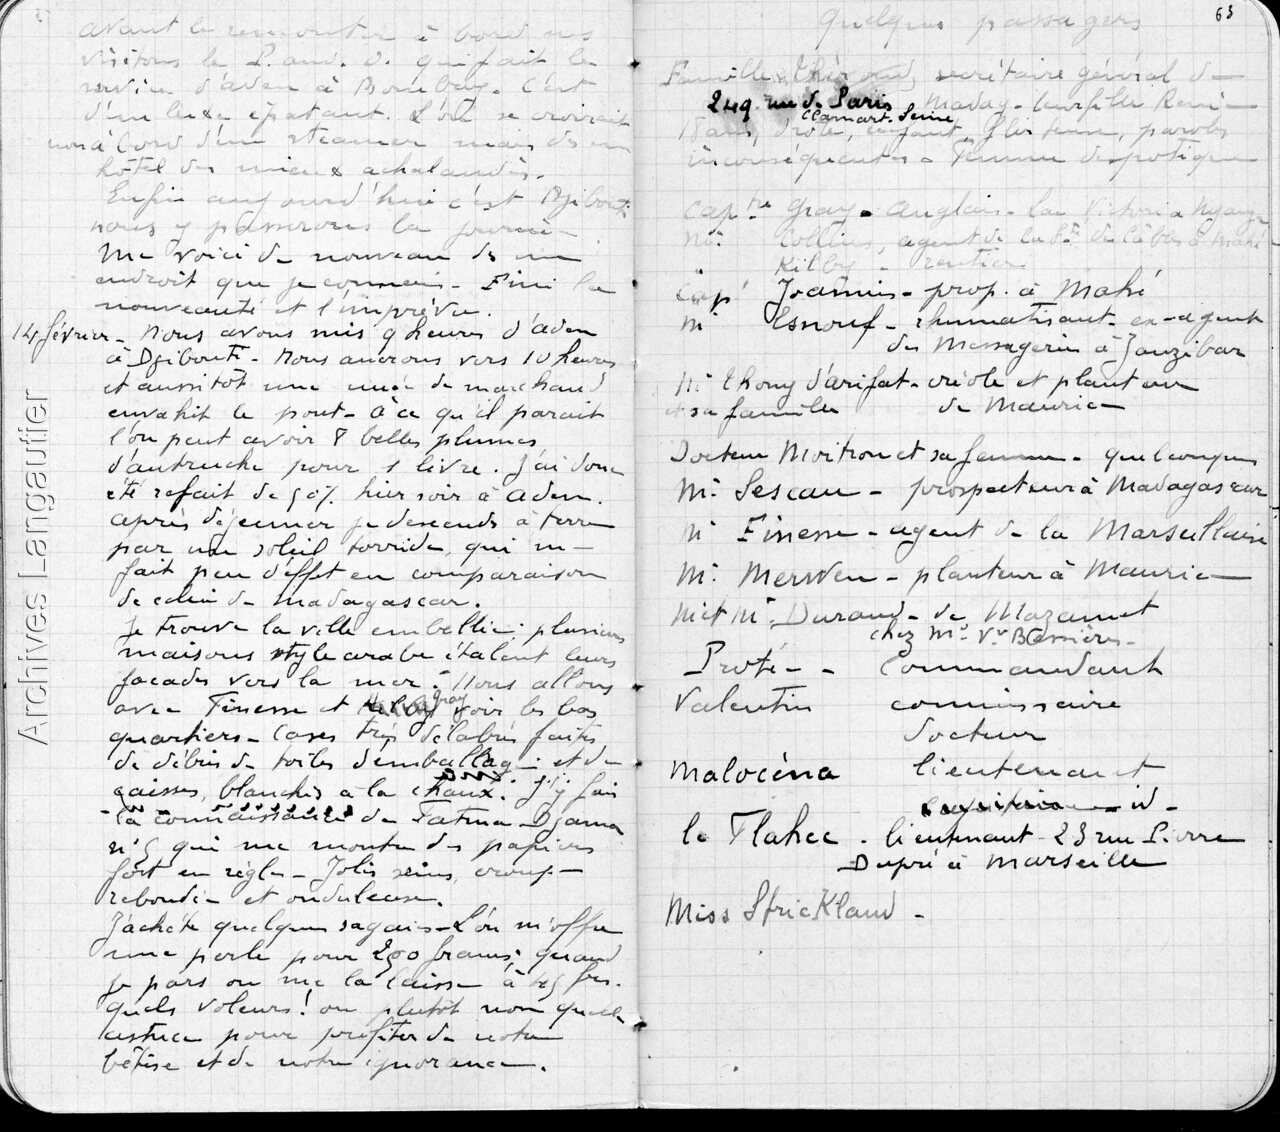 avant de remonter à bord nous
visitons le P. and. O. qui fait le
service d'aden à Bombay. C'est
d'un luxe épatant. L'on se croirait
non à bord d'un steamer mais ds un
hôtel des mieux achalandés.
Enfin aujourd'hui c'est Djibouti
nous y passerons la journée.
Me voici de nouveau ds un
endroit que je connais. Fini la
nouveauté et l'imprévu.
14 février - Nous avons mis 9 heures d'aden
à Djibouti - Nous ancrons vers 10 heures
et aussitôt une nuée de marchands
envahit le pont - à ce qu'il parait
l'on peut avoir 8 belles plumes
d'autruche pour 1 livre. J'ai donc
été refait de 50% hier soir à aden.
après déjeuner je descends à terre
par un soleil torride, qui me
fait peu d'effet en comparaison
de celui de Madagascar.
Je trouve la ville embellie; plusieurs
maisons style arabe étalent leurs
façades vers la mer. Nous allons
avec Finesse et Gray voir les bas
quartiers - Cases très délabrées faites
de débris de toiles d'emballage et de
caisses, blanchies à la chaux. J'y fais
la connaissance de Fatma Djama
n° 5 qui me montre des papiers
fort en règle - Jolis seins, croupe
rebondie et onduleuse.
J'achète quelques sagaies - L'on m'offre
une perle pour 200 francs; quand
je pars on me la laisse à 25 frs.
quels voleurs! ou plutôt non quelle
astuce pour profiter de notre
bêtise et de notre ignorance.
Archives Langautier
63
Quelques passagers
Famille secrétaire général de
249 rue de Paris Madag - leur fille Renée
Clamart. Seine
18 ans, drôle, enfant, flirteuse, paroles
inconséquentes - Femme despotique
Cap^tne Gray - anglais - lac Victoria Nyanza
M^r. Collins, agent de la C^ie de Câbles à Mahé
" Kilby - rentier
Cap^t Joannis - prop. à Mahé
M^r Esnouf - rhumatisant - ex-agent
des Messageries à Zanzibar
M^r Thomy d'arifat - créole et planteur
et sa famille de Maurice
Docteur Moitron et sa femme - quelconques
M^r. Lescau - prospecteur à Madagascar
M^r Finesse - agent de la Marseillaise
M^r. Merwen - planteur à Maurice
M^r et M^e Durand - de Mazamet
chez M^e V^ve Barrière -
Proté - - Commandant
Valentin commissaire
docteur
Malocéna lieutenant
- id -
le Flahec - lieutenant 23 rue Pierre
Dupré à Marseille
Miss Strickland -